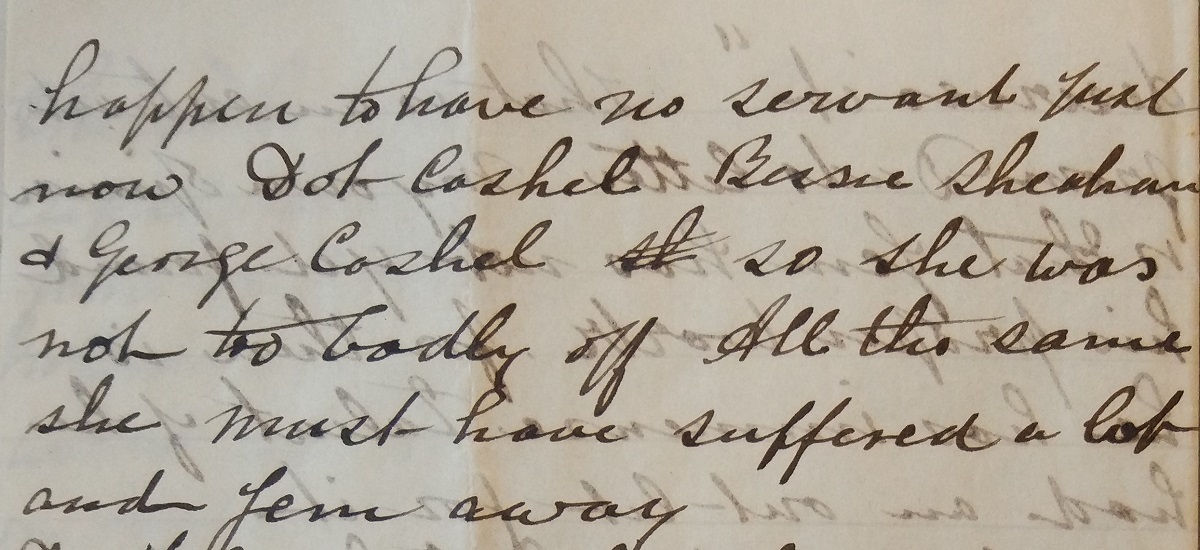 happen to have no servant just
now Dot Cashel Bessie Sheahan
& George Cashel so she was
not too badly off All the same
she must have suffered a lot
and Jem away